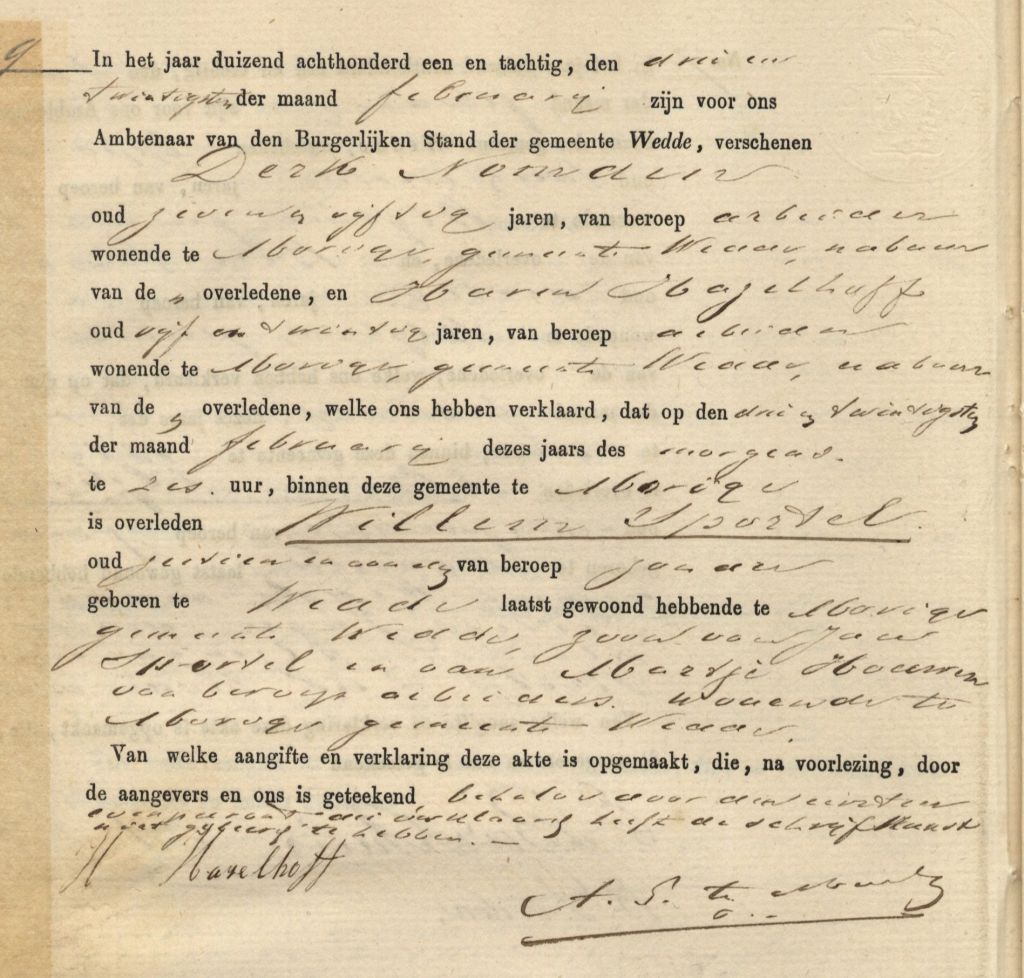 9
In het jaar duizend achthonderd een en tachtig, den drie en
twintigsten der maand februarij zijn voor ons
Ambtenaar van den Burgerlijken Stand der gemeente Wedde, verschenen
Derk Nomden
oud zeven en vijftig jaren, van beroep arbeider
wonende te Morige, gemeente Wedde, nabuur
van de „ overledene, en Harm Hazelhoff
oud vijf en twintig jaren, van beroep arbeider
wonende te Morige, gemeente Wedde, nabuur
van de „ overledene, welke ons hebben verklaard, dat op den drie en twintigsten
der maand februarij dezes jaars des morgens
te zes uur, binnen deze gemeente te Morige
is overleden Willem Sportel.
oud van beroep zonder
geboren te Wedde laatst gewoond hebbende te Morige
gemeente Wedde, zoon van Jan
Sportel en van Martje Houwen
van beroep arbeiders wonende te
Morige gemeente Wedde.
Van welke aangifte en verklaring deze akte is opgemaakt, die, na voorlezing, door
de aangevers en ons is geteekend, behalve door den eersten
die verklaard heeft de schrijfkunst
niet te hebben. —
H Haselhoff
A. S. te